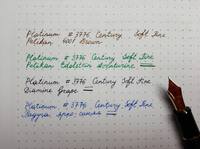 Platinum #3776 Century Soft Fine
Pelikan 4001 Brown
Platinum #3776 Century Soft Fine
Pelikan Edelstein Aventurine
Platinum #3776 Century Soft Fine
Diamine Grape
Platinum #3776 Century Soft Fine